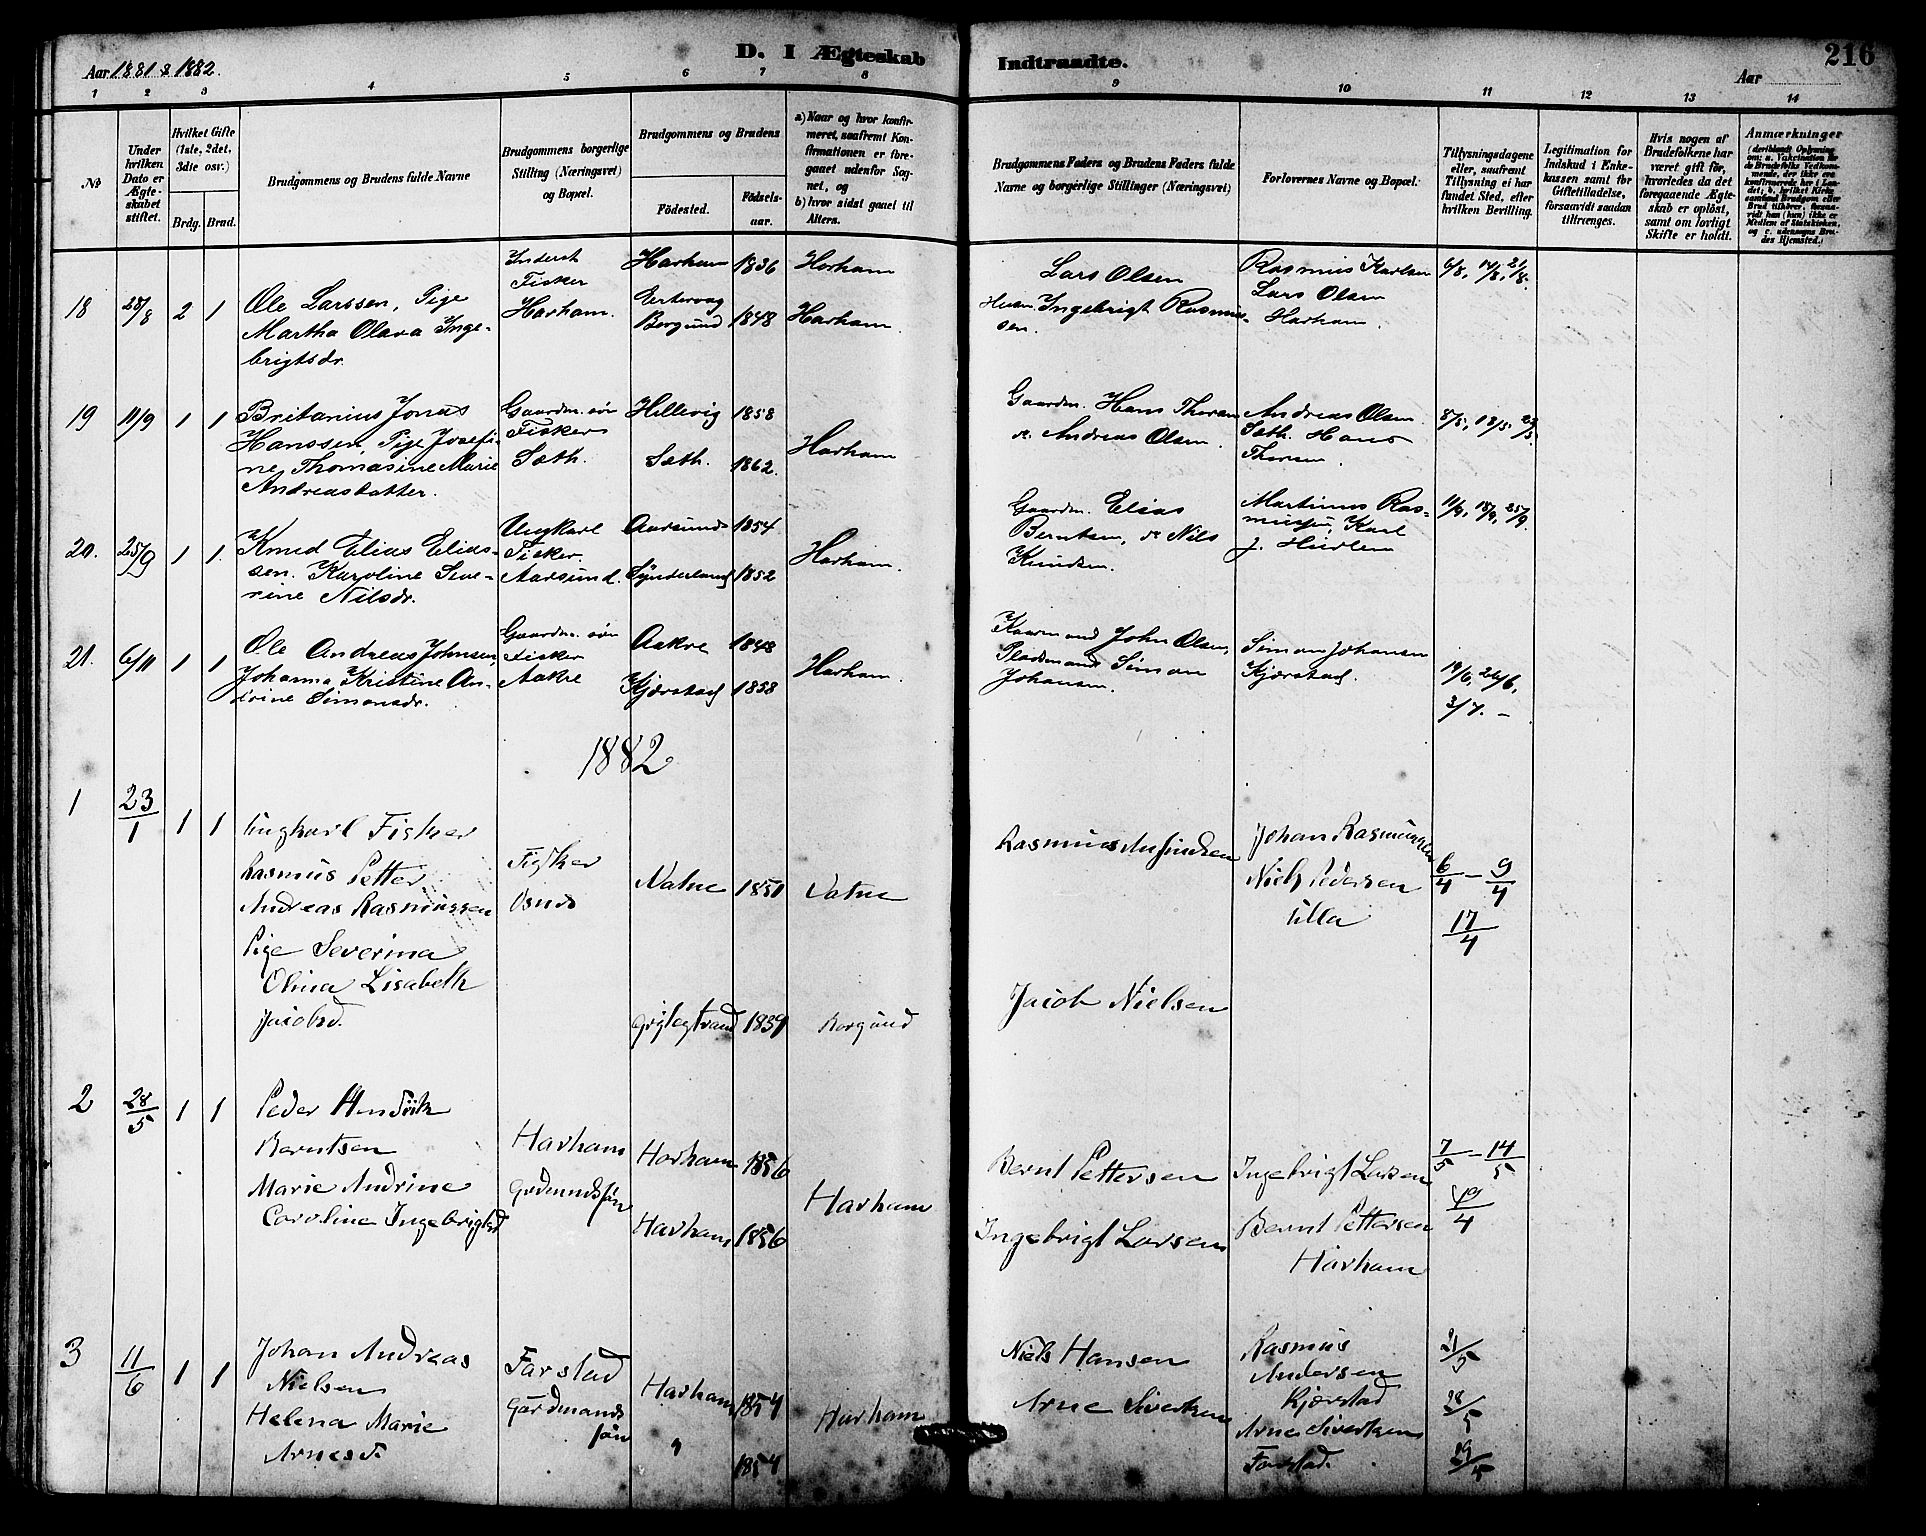 Aar 1881 & 1882.
D. I Ægteskab Indtraadte.
Aar
216
1 2 3 4 5 6 7 8 9 10 11 12 13 14
No
Under hvilken Dato er Ægteskabet stiftet.
Hvilket Gifte (1ste, 2det, 3die osv.)
Brdg. Brud.
Brudgommens og Brudens fulde Navne
Brudgommens borgerlige Stilling (Næringsvei) og Bopæl.
Brudgommens og Brudens
Fødested.
Fødselsaar.
a) Naar og hvor konfirmeret, saafremt Konfirmationen er foregaaet udenfor Sognet, og
b) hvor sidst gaaet til Alters.
Brudgommens Faders og Brudens Faders fulde Navne og borgerlige Stillinger (Næringsvei)
Forlovernes Navne og Bopæl.
Tillysningsdagene eller, saafremt Tillysning ei har fundet Sted, efter hvilken Bevilling.
Legitimation for Indskud i Enkekassen samt for Giftetilladelse, forsaavidt saadan tiltrænges.
Hvis nogen af Brudefolkene har været gift før, hvorledes da det foregaaende Ægteskab er opløst, samt om lovligt Skifte er holdt.
Anmærkninger
18 28/8 2 1
Ole Larssen, Pige
Martha Olava Inge-
brigtsdr.
Inderst
Fisker
Harham.
Harham 1836 Harham
Borgund 1848 Harham.
Lars Olsen
Ingebrigt Rasmus-
sen.
Rasmus Karlsen
Lars Olsen
Harham.
6/8, 14/8, 21/8.
19 11/9 1 1
Britanius Jonas
Hanssen, Pige Josefi-
ne Thomasine Marie
Andreasdatter.
Gaardm. søn
Fisker
Sæth.
Hellevig 1858
Sæth. 1862.
Harham
Gaardm. Hans Thorsen
& Andreas Olsen.
Andreas Olsen
Sæth. Hans
Thorsen.
8/5, 13/5, 22/5.
20. 25/9 1 1.
Knud Elias Elias-
sen. Karoline Seve-
rine Nilsdr.
Ungkarl
Fisker.
Aarsund.
Aarsund 1854
Synderland 1852
Harham.
Gaardm. Elias
Berntsen, & Nils
Knudsen.
Martinus Ras-
mussen, Karl
J. Hurlen
11/9, 18/9, 25/9.
21. 6/11 1 1
Ole Andreas Johnsen,
Johanna Kristine An-
drine Simonsdr.
Gaardm. søn
Fisker
Aakre
Aakre 1848
Kjærstad 1858
Harham.
Kaarmand John Olsen,
Pladsmand Simon
Johansen.
Simon Johansen
Kjærstad.
19/6, 26/6,
3/7. -
1882
1 23/1 1 1
Ungkarl Fisker
Rasmus Petter
Andreas Rasmussen
Pige Severina
Olina Lisabeth
Jacobsd.
Fisker
Osnes
Vatne 1851 Vatne
1839 Borgund
Rasmus
Jacob Nielsen
Johan Rasmussen
Niels Pedersen
Ulla
6/4 - 9/4
17/4
2 28/5 1 1
Peder Hendrik
Berntsen
Marie Andrine
Caroline Ingebrigtsd
Harham
Gårdmandssøn
Harham 1856
Harham 1856
Harham
Bernt Pettersen
Ingebrigt Larsen
Ingebrigt Larsen
Bernt Pettersen
Harham
7/5 - 14/5
3 11/6 1 1
Johan Andreas
Nielsen
Helena Marie
Arnesd
Farstad
Gårdmands
søn
Harham 1854
" 1854
Harham
Niels Hansen
Arne Sivertsen
Rasmus
Andersen
Kjærstad
Arne Sivertsen
Farstad.
21/5
28/5